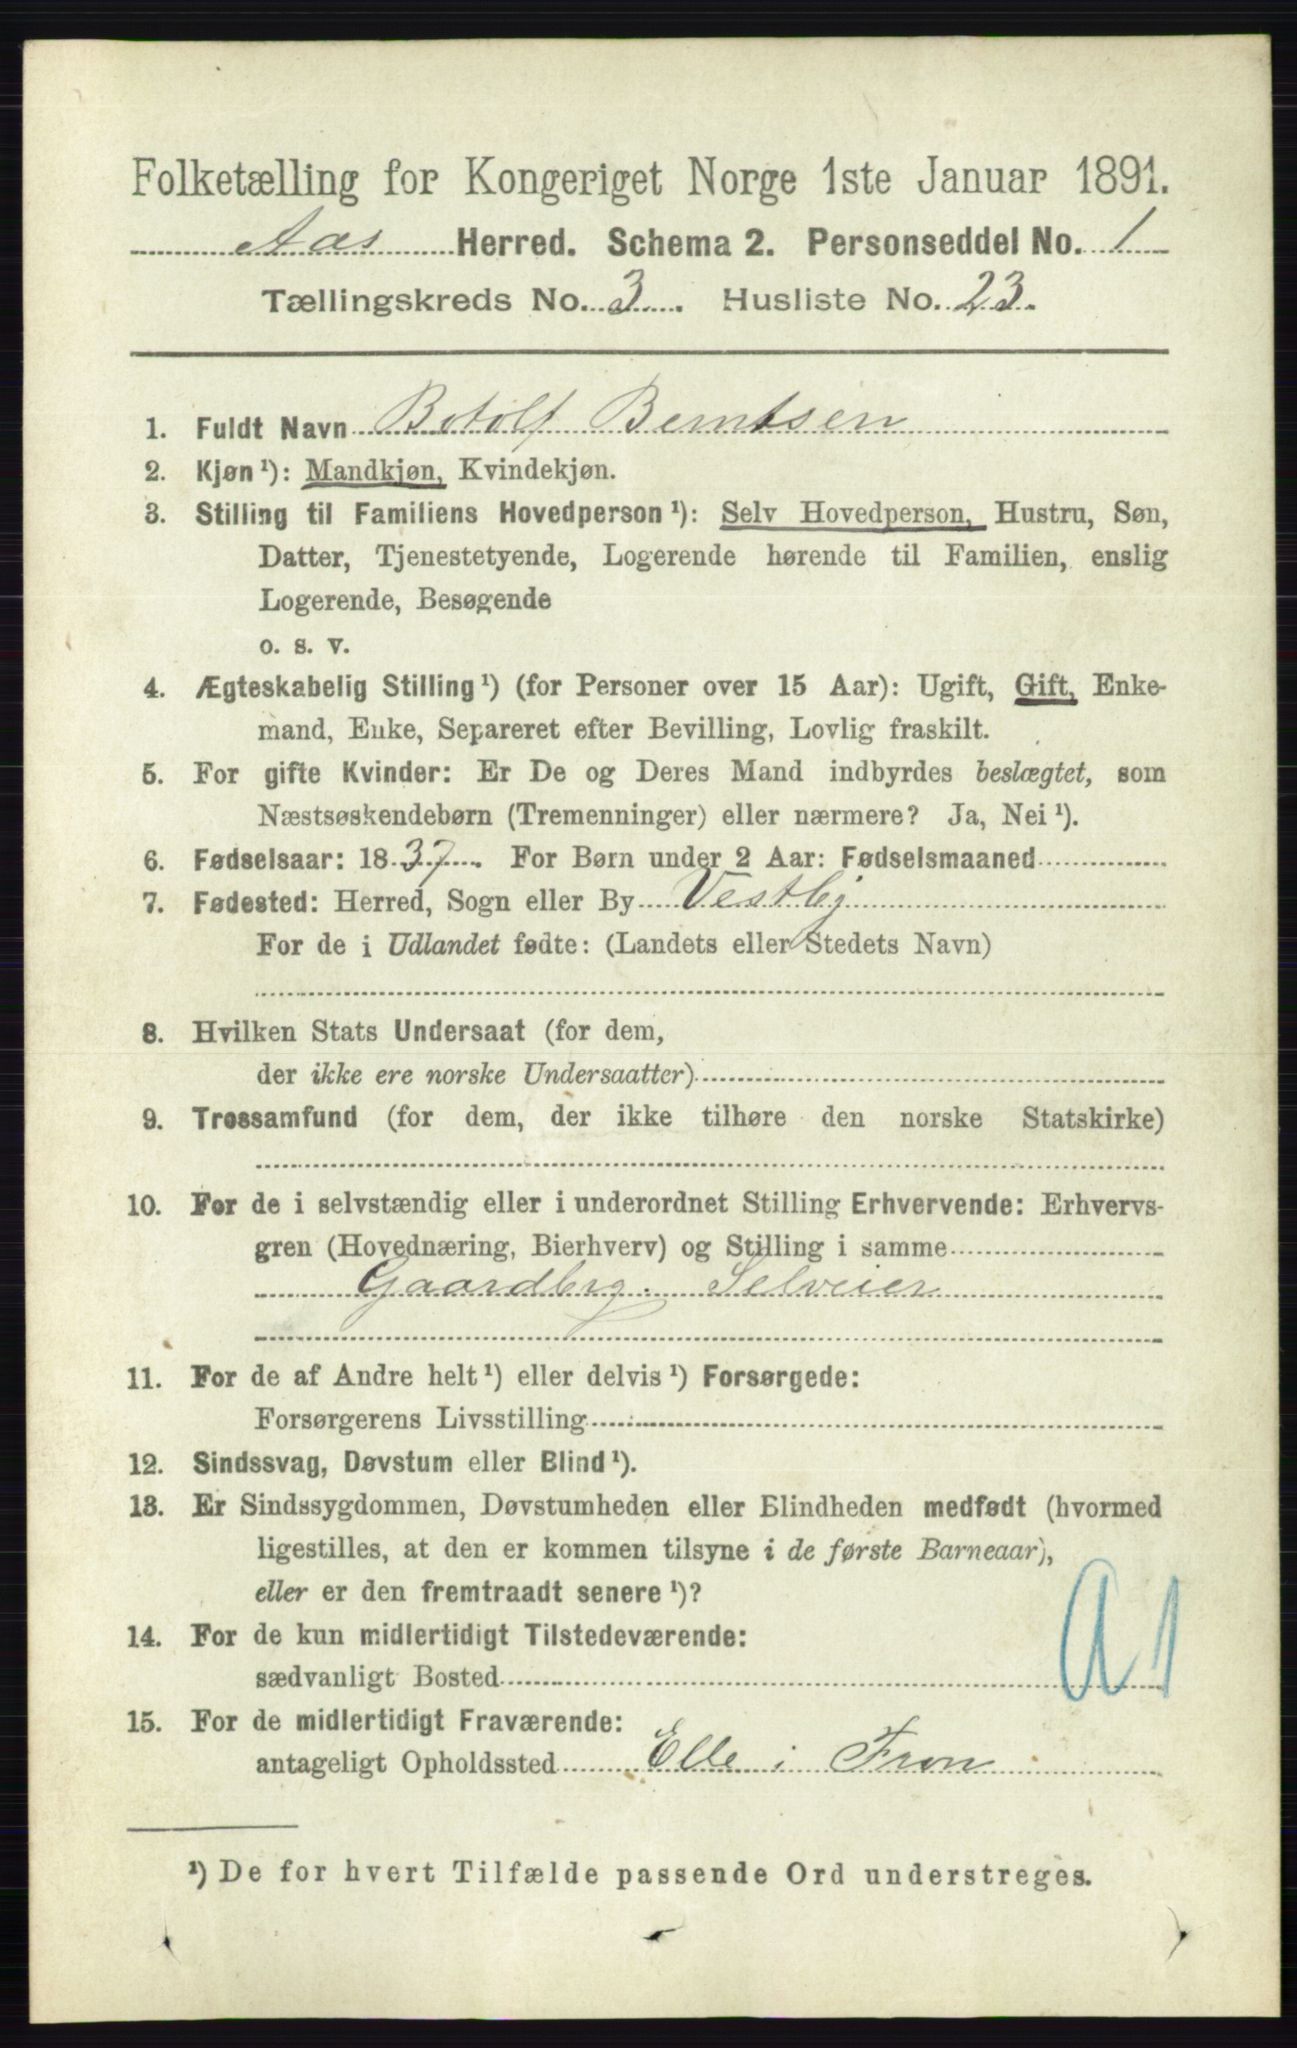 Folketælling for Kongeriget Norge 1ste Januar 1891.
Aas Herred. Schema 2. Personseddel No. 1
Tællingskreds No. 3. Husliste No. 23.
1. Fuldt Navn Botolf Berntsen
2. Kjøn ¹): Mandkjøn, Kvindekjøn.
3. Stilling til Familiens Hovedperson ¹): Selv Hovedperson, Hustru, Søn,
Datter, Tjenestetyende, Logerende hørende til Familien, enslig
Logerende, Besøgende
o. s. v.
4. Ægteskabelig Stilling ¹) (for Personer over 15 Aar): Ugift, Gift, Enke-
mand, Enke, Separeret efter Bevilling, Lovlig fraskilt.
5. For gifte Kvinder: Er De og Deres Mand indbyrdes beslægtet, som
Næstsøskendebørn (Tremenninger) eller nærmere? Ja, Nei ¹).
6. Fødselsaar: 1837. For Børn under 2 Aar: Fødselsmaaned
7. Fødested: Herred, Sogn eller By Vestby
For de i Udlandet fødte: (Landets eller Stedets Navn)
8. Hvilken Stats Undersaat (for dem,
der ikke ere norske Undersaatter)
9. Trossamfund (for dem, der ikke tilhøre den norske Statskirke)
10. For de i selvstændig eller i underordnet Stilling Erhvervende: Erhvervs-
gren (Hovednæring, Bierhverv) og Stilling i samme
Gaardbrg. Selveier
11. For de af Andre helt ¹) eller delvis ¹) Forsørgede:
Forsørgerens Livsstilling
12. Sindssvag, Døvstum eller Blind ¹).
13. Er Sindssygdommen, Døvstumheden eller Blindheden medfødt (hvormed
ligestilles, at den er kommen tilsyne i de første Barneaar),
eller er den fremtraadt senere ¹)?
14. For de kun midlertidigt Tilstedeværende:
sædvanligt Bosted
A1
15. For de midlertidigt Fraværende:
antageligt Opholdssted Elle i Fron
¹) De for hvert Tilfælde passende Ord understreges.